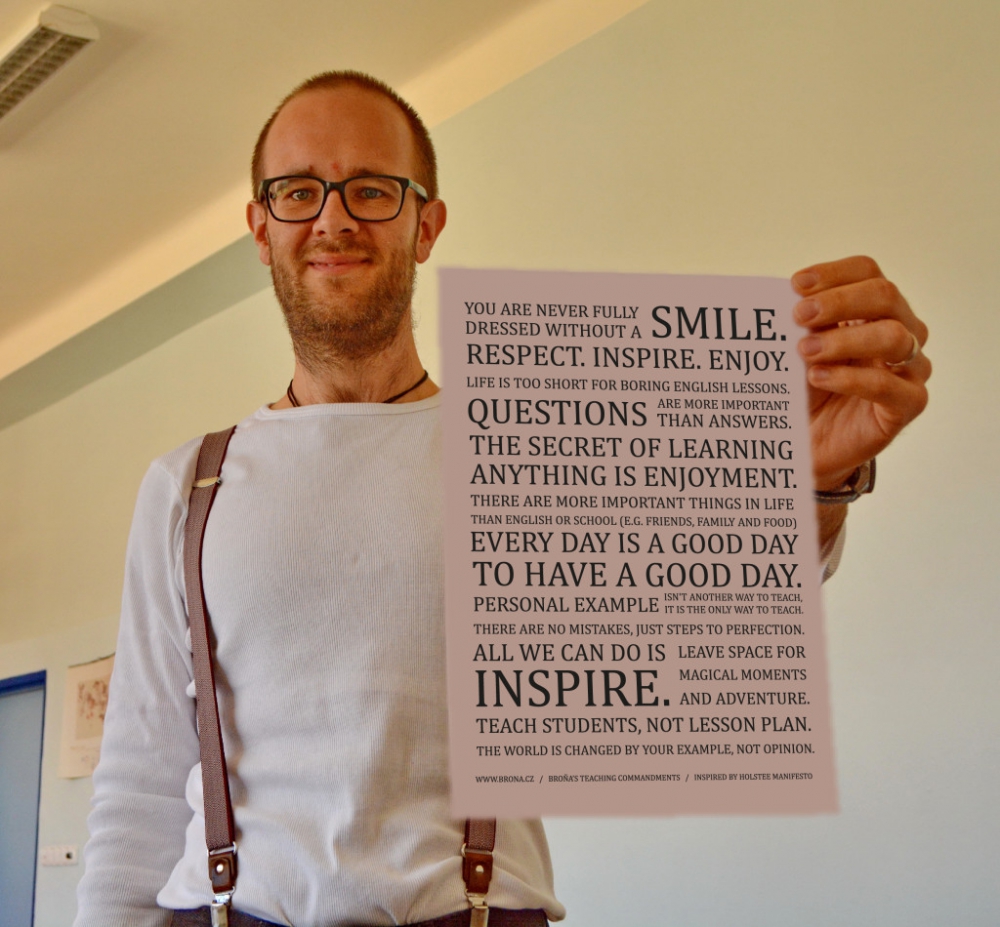 YOU ARE NEVER FULLY
DRESSED WITHOUT A SMILE.
RESPECT. INSPIRE. ENJOY.
LIFE IS TOO SHORT FOR BORING ENGLISH LESSONS.
QUESTIONS ARE MORE IMPORTANT
THAN ANSWERS.
THE SECRET OF LEARNING
ANYTHING IS ENJOYMENT.
THERE ARE MORE IMPORTANT THINGS IN LIFE
THAN ENGLISH OR SCHOOL (E.G. FRIENDS, FAMILY AND FOOD)
EVERY DAY IS A GOOD DAY
TO HAVE A GOOD DAY.
PERSONAL EXAMPLE ISN'T ANOTHER WAY TO TEACH,
IT IS THE ONLY WAY TO TEACH.
THERE ARE NO MISTAKES, JUST STEPS TO PERFECTION.
ALL WE CAN DO IS
INSPIRE.
LEAVE SPACE FOR
MAGICAL MOMENTS
AND ADVENTURE.
TEACH STUDENTS, NOT LESSON PLAN.
THE WORLD IS CHANGED BY YOUR EXAMPLE, NOT OPINION.
WWW.BRONA.CZ / BROŇA'S TEACHING COMMANDMENTS / INSPIRED BY HOLSTEE MANIFESTO